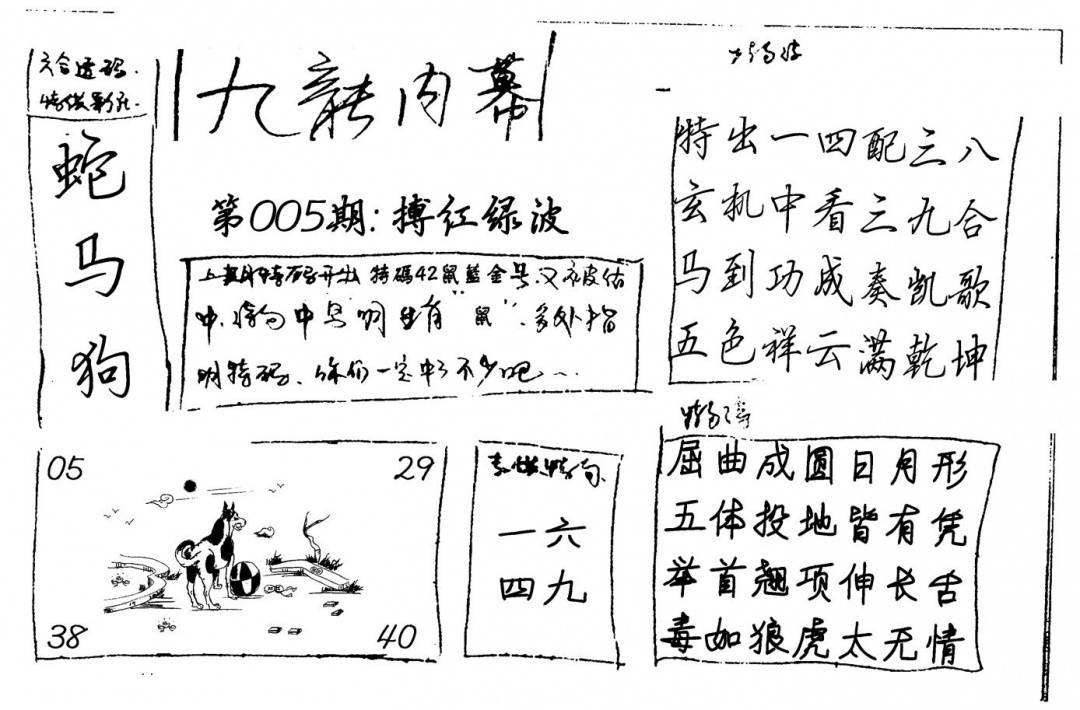 六合透码
蛇
马
狗
九龍内幕
第005期:搏红绿波
上期特码开出 特碼42鼠藍金号又被估
中,
中 "鼠",多处指
明特码、你们一定中了不少吧
特出一四配三八
玄机中看三九合
马到功成奏凯歌
五色祥云满乾坤
05
29
38
40
一六
四九
屈曲成圆日月形
五体投地皆有凭
举首翘项伸长舌
毒如狼虎太无情